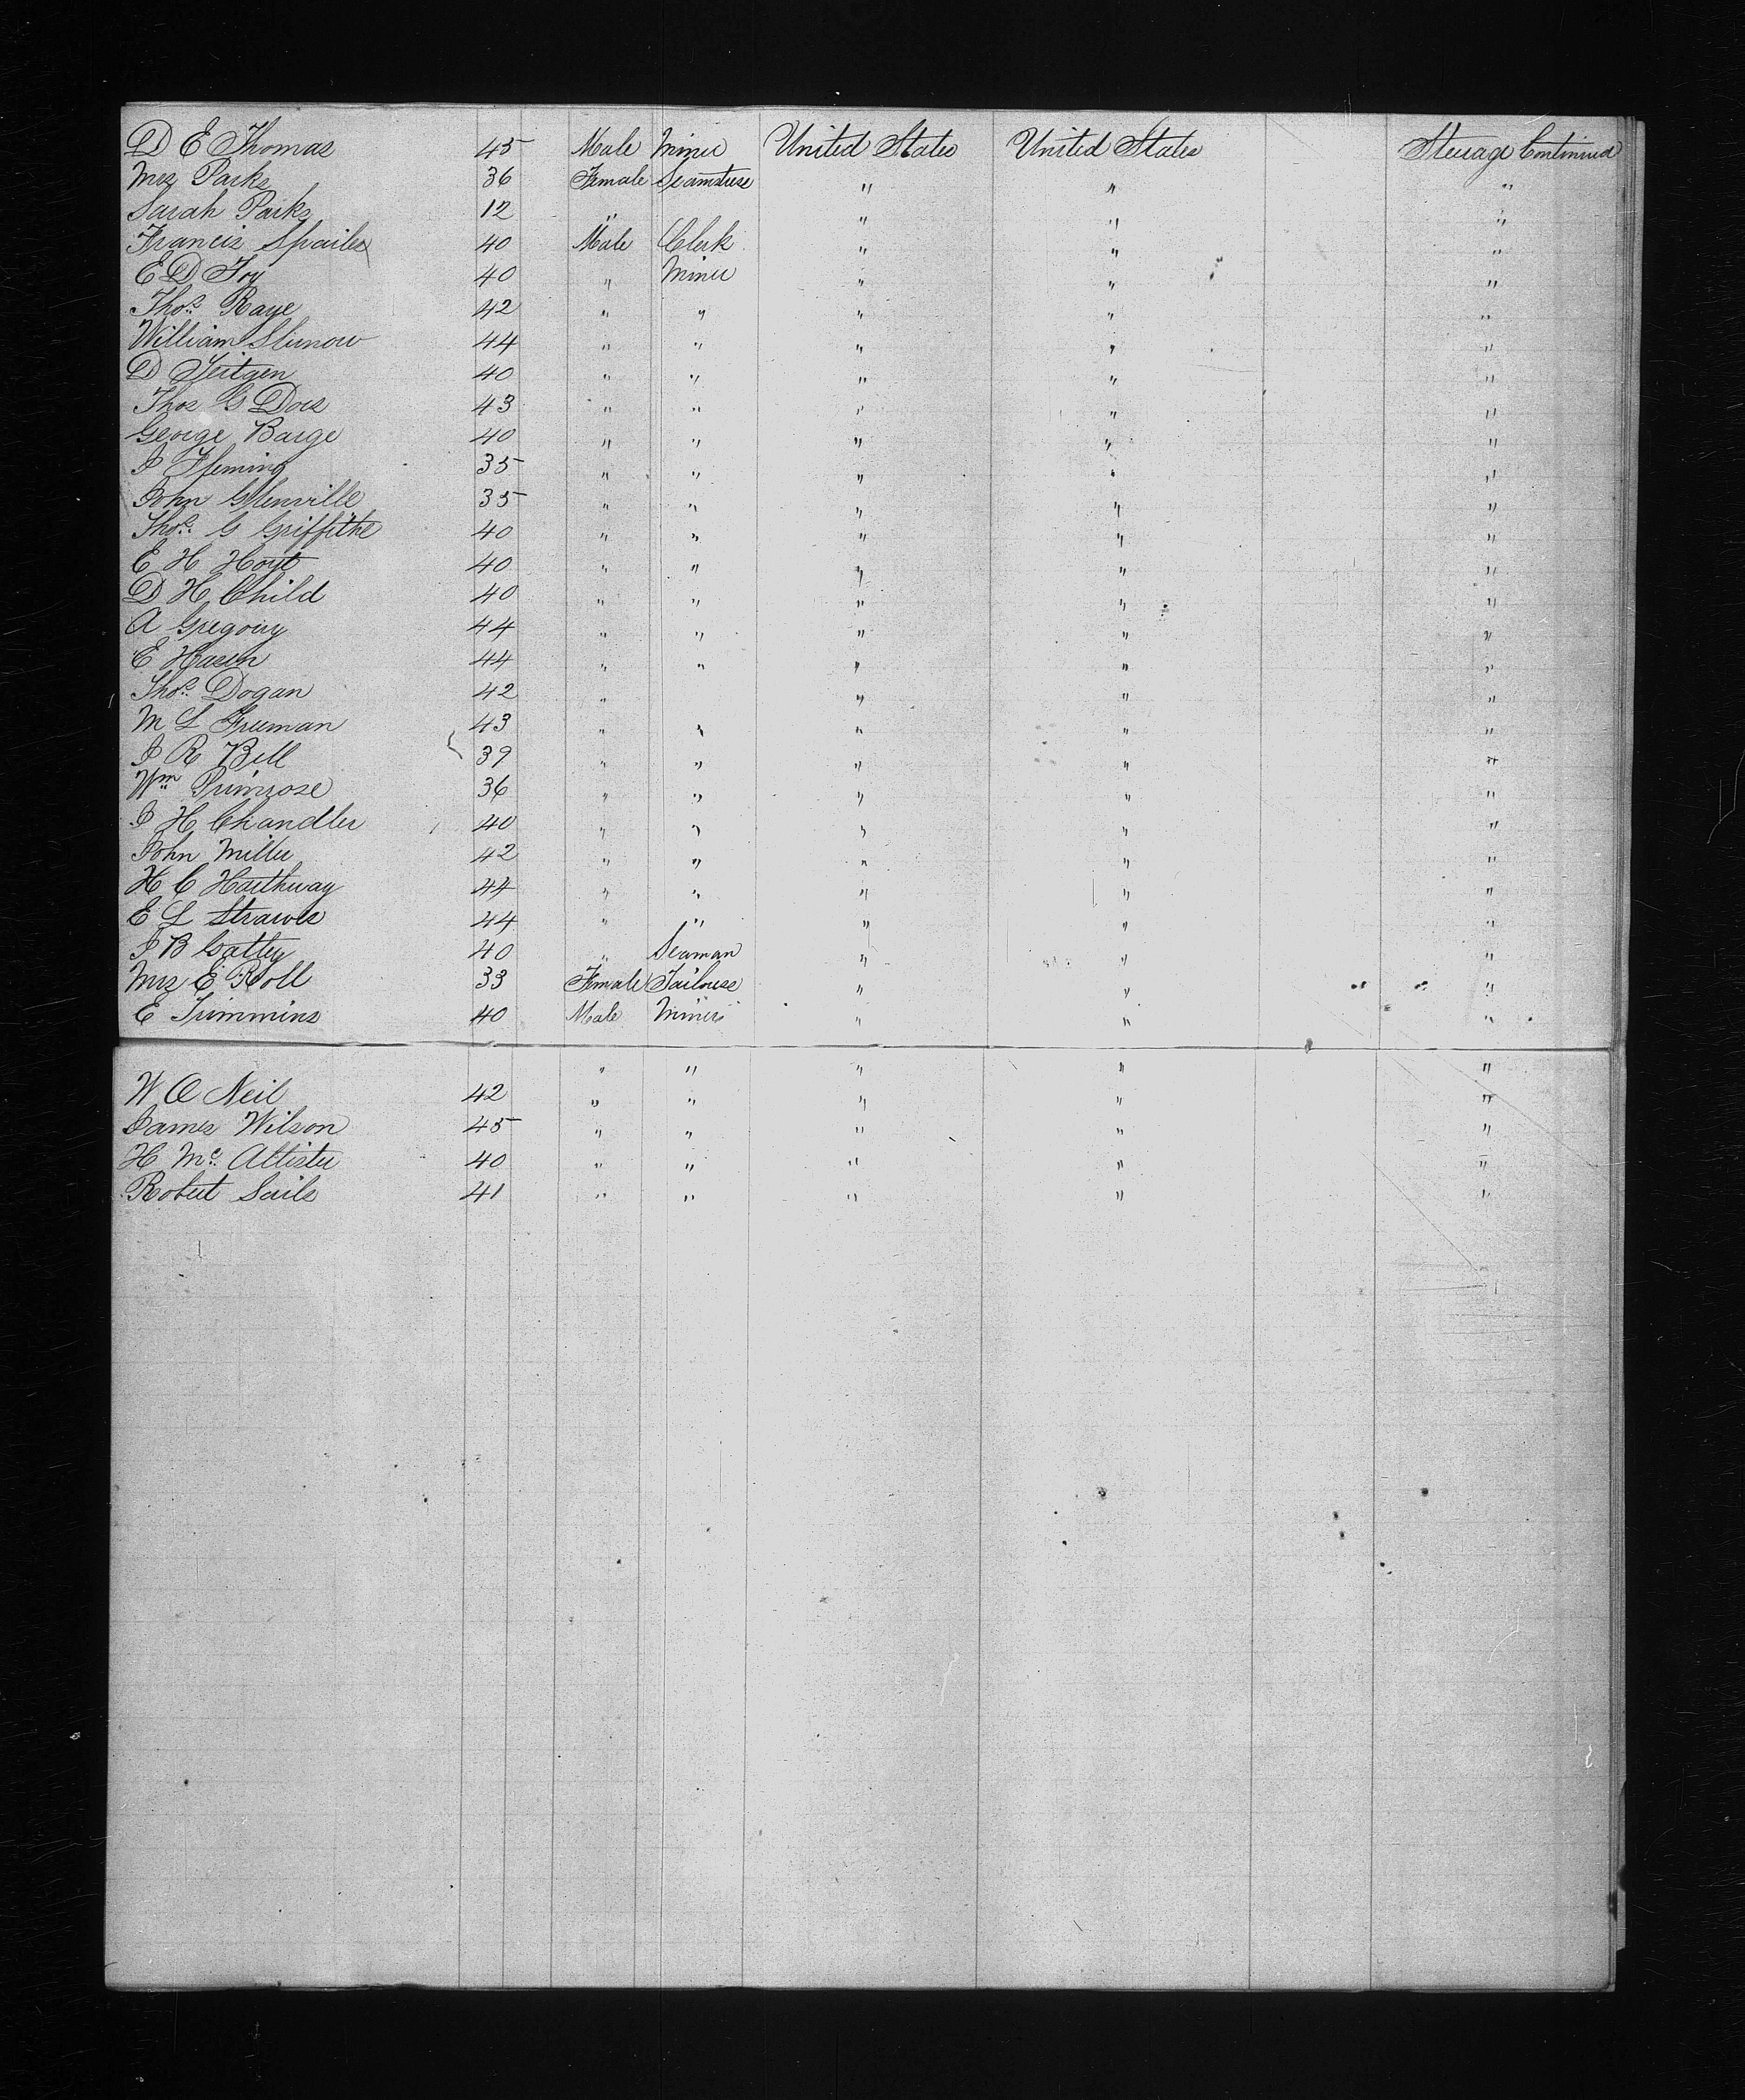 D E Thomas 45 Male Miner United States United States Steerage Continued
Mrs Parks 36 Female Seamstress " " "
Sarah Parks 12 " " " "
Francis 40 Male Clerk " " "
E D Foy 40 " Miner " " "
Thos. Raye 42 " " " " "
William 44 " " " " "
D Teitgen 40 " " " " "
Thos G Dors 43 " " " " "
George Barge 40 " " " " "
J Fleming 35 " " " " "
John Glenville 35 " " " " "
Thos. G Griffiths 40 " " " " "
E H Hoyt 40 " " " " "
D H Child 40 " " " " "
A Gregory 44 " " " " "
E Hasen 44 " " " " "
Thos. Dogan 42 " " " "
M L Freeman 43 " " " " "
J R Bell 39 " " " " "
Wm Primrose 36 " " " " "
J H Chandler 40 " " " " "
John Miller 42 " " " " "
H C Harthway 44 " " " " "
E L Straws 44 " " " " "
J B Gattey 40 " Seaman " " "
Mrs E Roll 33 Female Tailoress " " "
E Timmins 40 Male Miner " " "
" " " " "
W O Neil 42 " " " " "
James Wilson 45 " " " " "
H Mc. Allister 40 " " " " "
Robert Sails 41 " " " " "